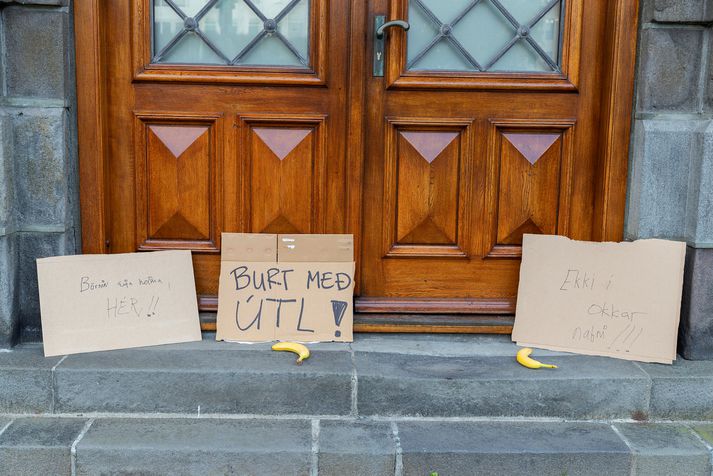 Börnin eiga heima
HÉR!!
BURT MEÐ
ÚTL!
Ekki í
okkar
nafni!!!